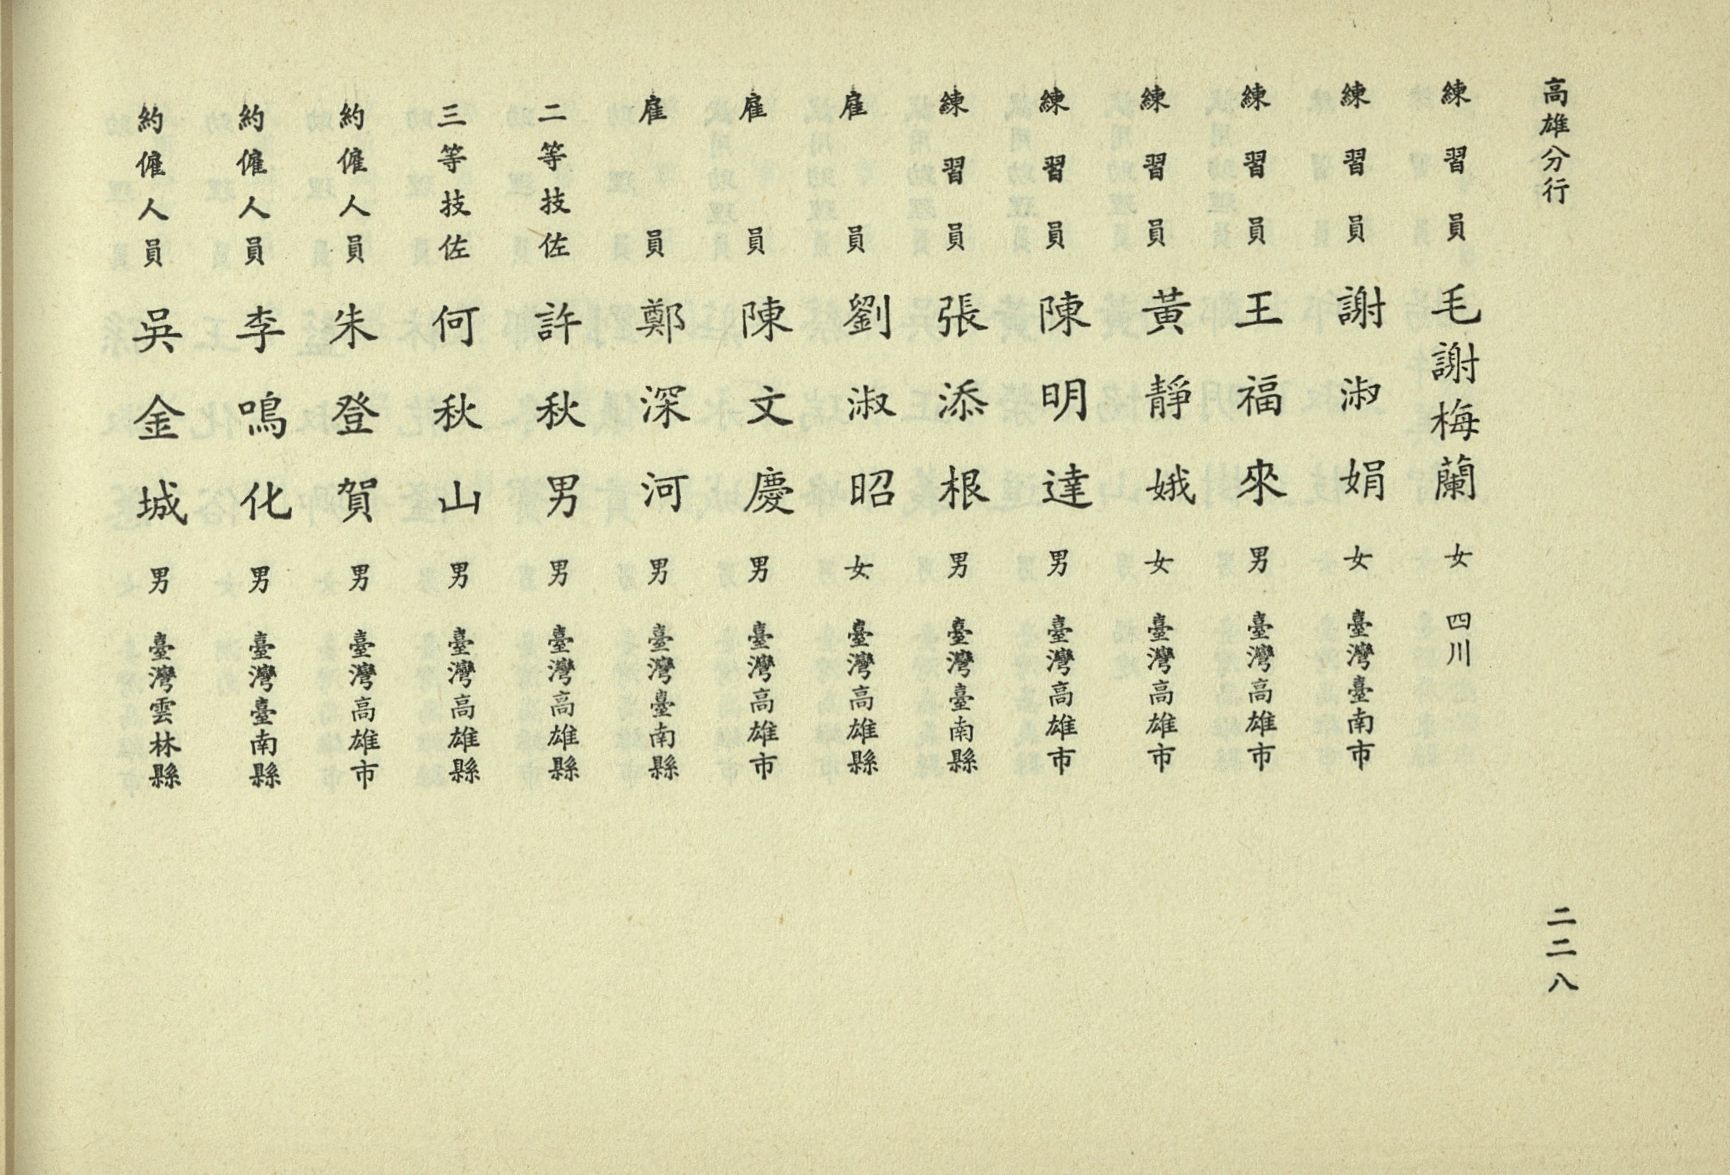 高雄分行
二二八
練習員 毛謝梅蘭 女 四川
練習員 謝淑娟 女 臺灣臺南市
練習員 王福來 男 臺灣高雄市
練習員 黃靜娥 女 臺灣高雄市
練習員 陳明達 男 臺灣高雄市
練習員 張添根 男 臺灣臺南縣
雇員 劉淑昭 女 臺灣高雄縣
雇員 陳文慶 男 臺灣高雄市
雇員 鄭深河 男 臺灣臺南縣
二等技佐 許秋男 男 臺灣高雄縣
三等技佐 何秋山 男 臺灣高雄縣
約僱人員 朱登賀 男 臺灣高雄市
約僱人員 李鳴化 男 臺灣臺南縣
約僱人員 吳金城 男 臺灣雲林縣